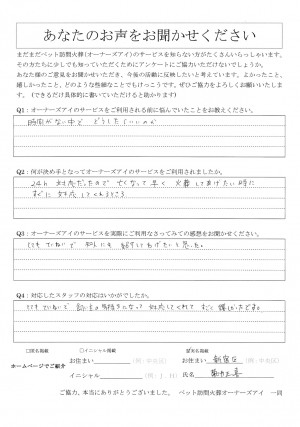 あなたのお声をお聞かせください
まだまだペット訪問火葬(オーナーズアイ)のサービスを知らない方がたくさんいらっしゃいます。
その方たちに少しでも知っていただくためにアンケートにご協力いただけないでしょうか。
あなた様のご意見をお聞かせいただき、今後の活動に反映したいと考えています。よかったこと、
嬉しかったこと、どのような些細なことでもけっこうです。ぜひご協力をよろしくお願いいたします。
(できるだけ具体的に書いていただけると助かります)
Q1:オーナーズアイのサービスをご利用される前に悩んでいたことをお教えください。
時間がない中で どうしたらいいのか
Q2:何が決め手となってオーナーズアイのサービスをご利用されましたか。
24h 対応だったので 亡くなって早く 火葬してあげたい時に
すぐに対応してくれるところ
Q3:オーナーズアイのサービスを実際にご利用なさってみての感想をお聞かせください。
とてもていねいで 知人にも 紹介してあげたいと思った。
Q4:対応したスタッフの対応はいかがでしたか。
とてもていねいで 気持ちになり 対応してくれて すごく嬉しかったです。
□匿名掲載 ○イニシャル掲載 実名掲載
お住まい お住まい 新宿区
ホームページでご紹介
イニシャル 氏名
ご協力、本当にありがとうございました。 ペット訪問火葬オーナーズアイ 一同